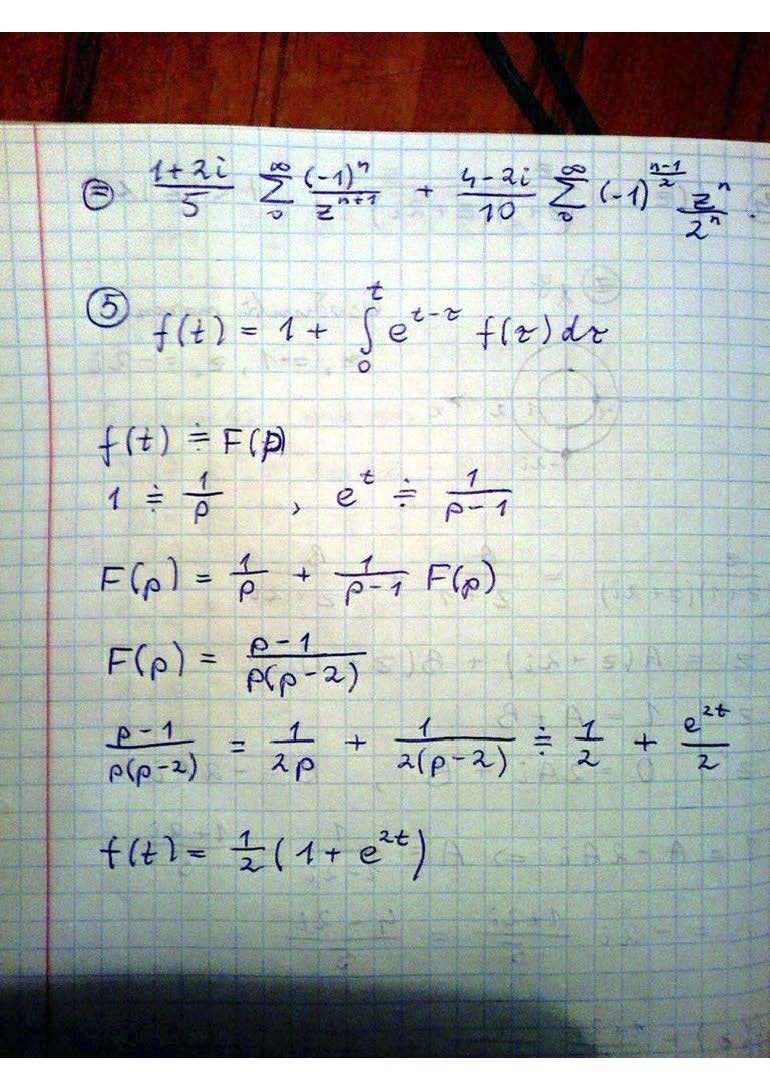 ⊜ \frac{1+2i}{5} \sum_{0}^{\infty} \frac{(-1)^n}{z^{n+1}} + \frac{4-2i}{10} \sum_{0}^{\infty} (-1)^{\frac{n-1}{2}} \frac{z^n}{2^n} .
⑤ f(t) = 1 + \int_{0}^{t} e^{t-τ} f(τ) dτ
f(t) ≑ F(p)
1 ≑ \frac{1}{p} , e^t ≑ \frac{1}{p-1}
F(p) = \frac{1}{p} + \frac{1}{p-1} F(p)
F(p) = \frac{p-1}{p(p-2)}
\frac{p-1}{p(p-2)} = \frac{1}{2p} + \frac{1}{2(p-2)} ≑ \frac{1}{2} + \frac{e^{2t}}{2}
f(t) = \frac{1}{2} (1 + e^{2t})